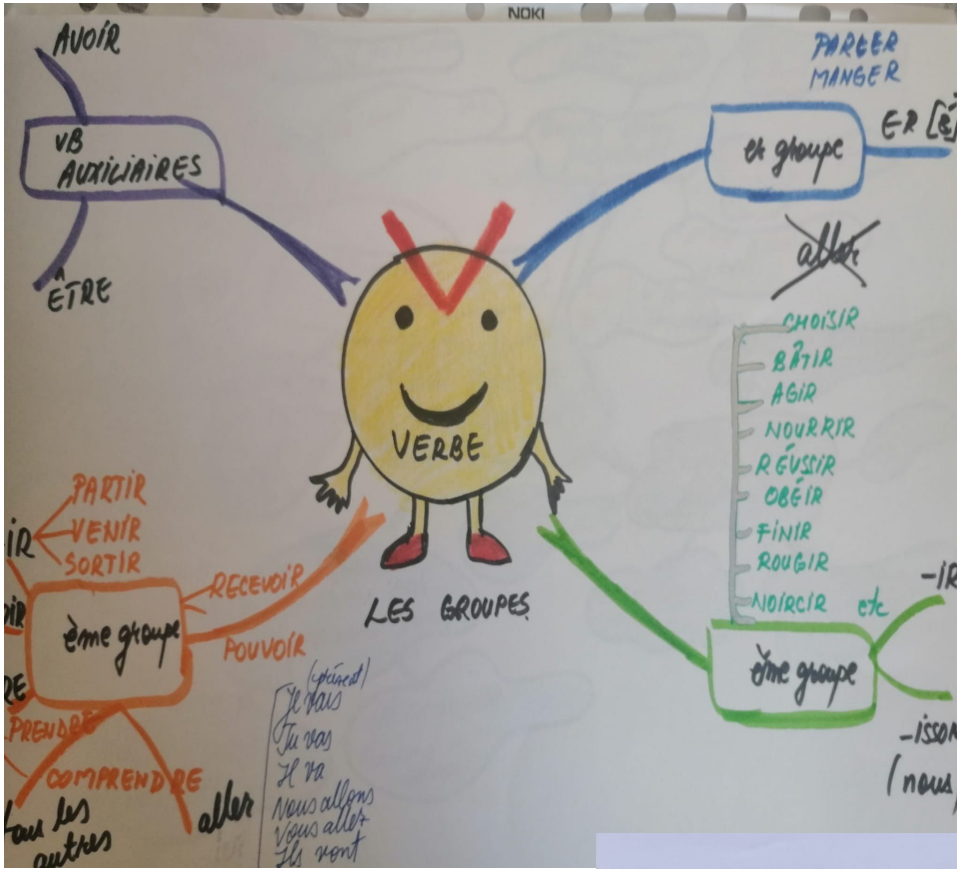 NOKI
AVOIR
VB
AUXILIAIRES
ÊTRE
PARLER
MANGER
er groupe
ER [é]
aller
VERBE
LES GROUPES
CHOISIR
BÂTIR
AGIR
NOURRIR
RÉUSSIR
OBÉIR
FINIR
ROUGIR
NOIRCIR etc
ème groupe
-IR
-ISSON
(nous
IR
PARTIR
VENIR
SORTIR
OIR
RECEVOIR
POUVOIR
ème groupe
RE
PRENDRE
COMPRENDRE
les
autres
aller
(présent)
Je vais
Tu vas
Il va
Nous allons
Vous allez
Ils vont